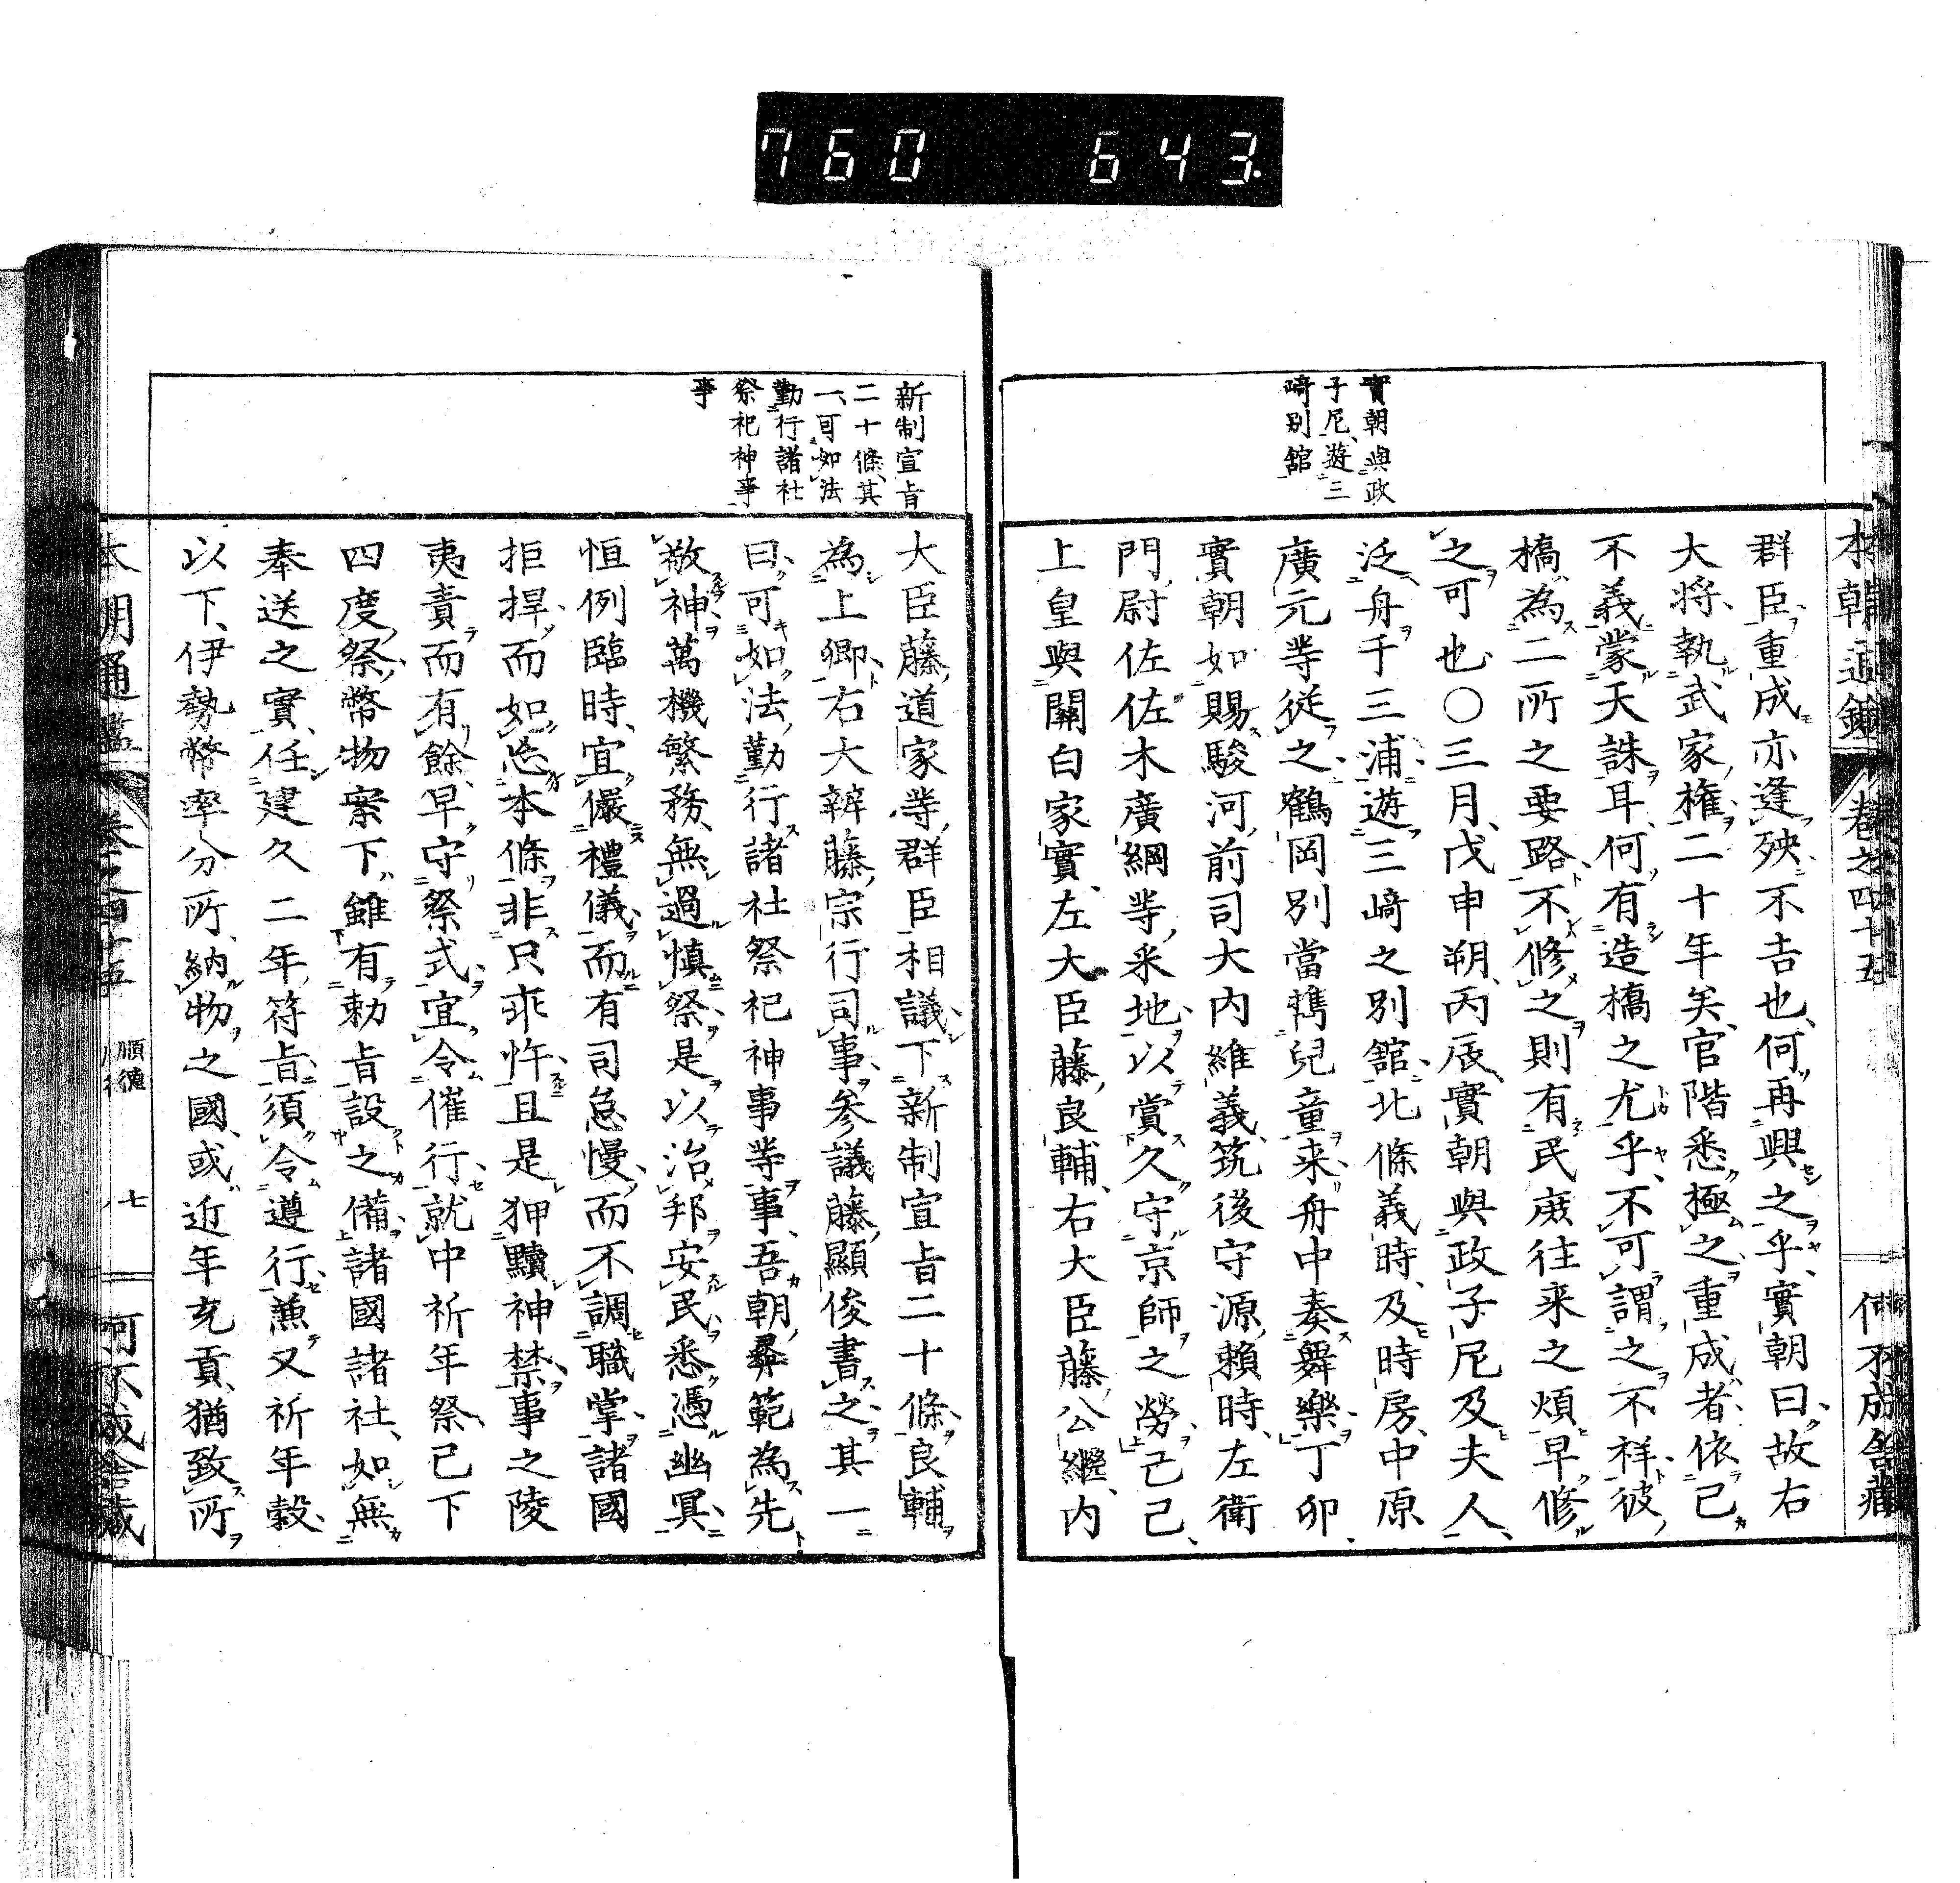 760 643.
本朝通鑑 卷之四十五 何不成舎蔵
實朝與政
子尼遊三
﨑別舘
群臣重成亦逢殃不吉也何再興之乎實朝曰故右
大将執武家権二十年矣官階悉極之重成者依己
不義蒙天誅耳何有造橋之尤乎不可謂之不祥彼
橋為二所之要路不修之則有民庶往来之煩早修
之可也〇三月戊申朔丙辰實朝與政子尼及夫人
泛舟于三浦遊三﨑之別舘北條義時及時房中原
廣元等從之鶴岡別當儁兒童来舟中奏舞樂丁卯
實朝如賜駿河前司大内維義筑後守源頼時左衛
門尉佐佐木廣綱等釆地以賞久守京師之勞己己
上皇與關白家實左大臣藤良輔右大臣藤公繼内
新制宣旨
二十條其
一可如法
勤行諸社
祭祀神事
事
大臣藤道家等群臣相議下新制宣旨二十條良輔
為上卿右大辨藤宗行司事参議藤顯俊書之其一
曰可如法勤行諸社祭祀神事等事吾朝彝範為先
敬神萬機繁務無過慎祭是以治邦安民悉憑幽冥
恒例臨時宜儼禮儀而有司怠慢而不調職掌諸國
拒捍而如忘本條非只乖忤且是狎黷神禁事之陵
夷責而有餘早守祭式宜令催行就中祈年祭已下
四度祭幣物案下雖有勅旨設之備諸國諸社如無
奉送之實任建久二年符旨須令遵行兼又祈年穀
以下伊勢幣率分所納物之國或近年充貢猶致所
本朝通鑑 卷之四十五 順德 七